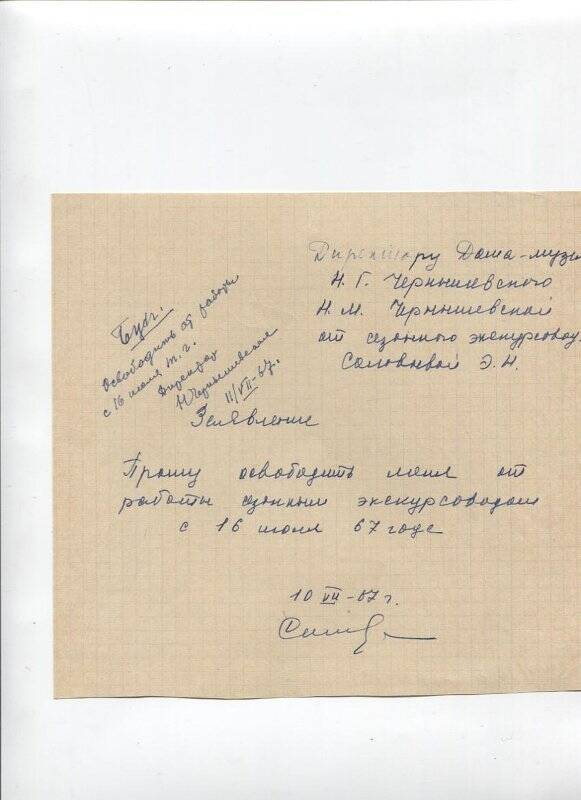 Директору Дома-музе
Н. Г. Чернышевского
Н. М. Чернышевской
от сезонного экскурсовод
Соловьевой Э. Н.
Освободить от работы
с 16 июля т. г.
Директор
Н Чернышевская
11/VII-67.
Заявление
Прошу освободить меня от
работы сезонным экскурсоводом
с 16 июля 67 года
10 VII-67 г.